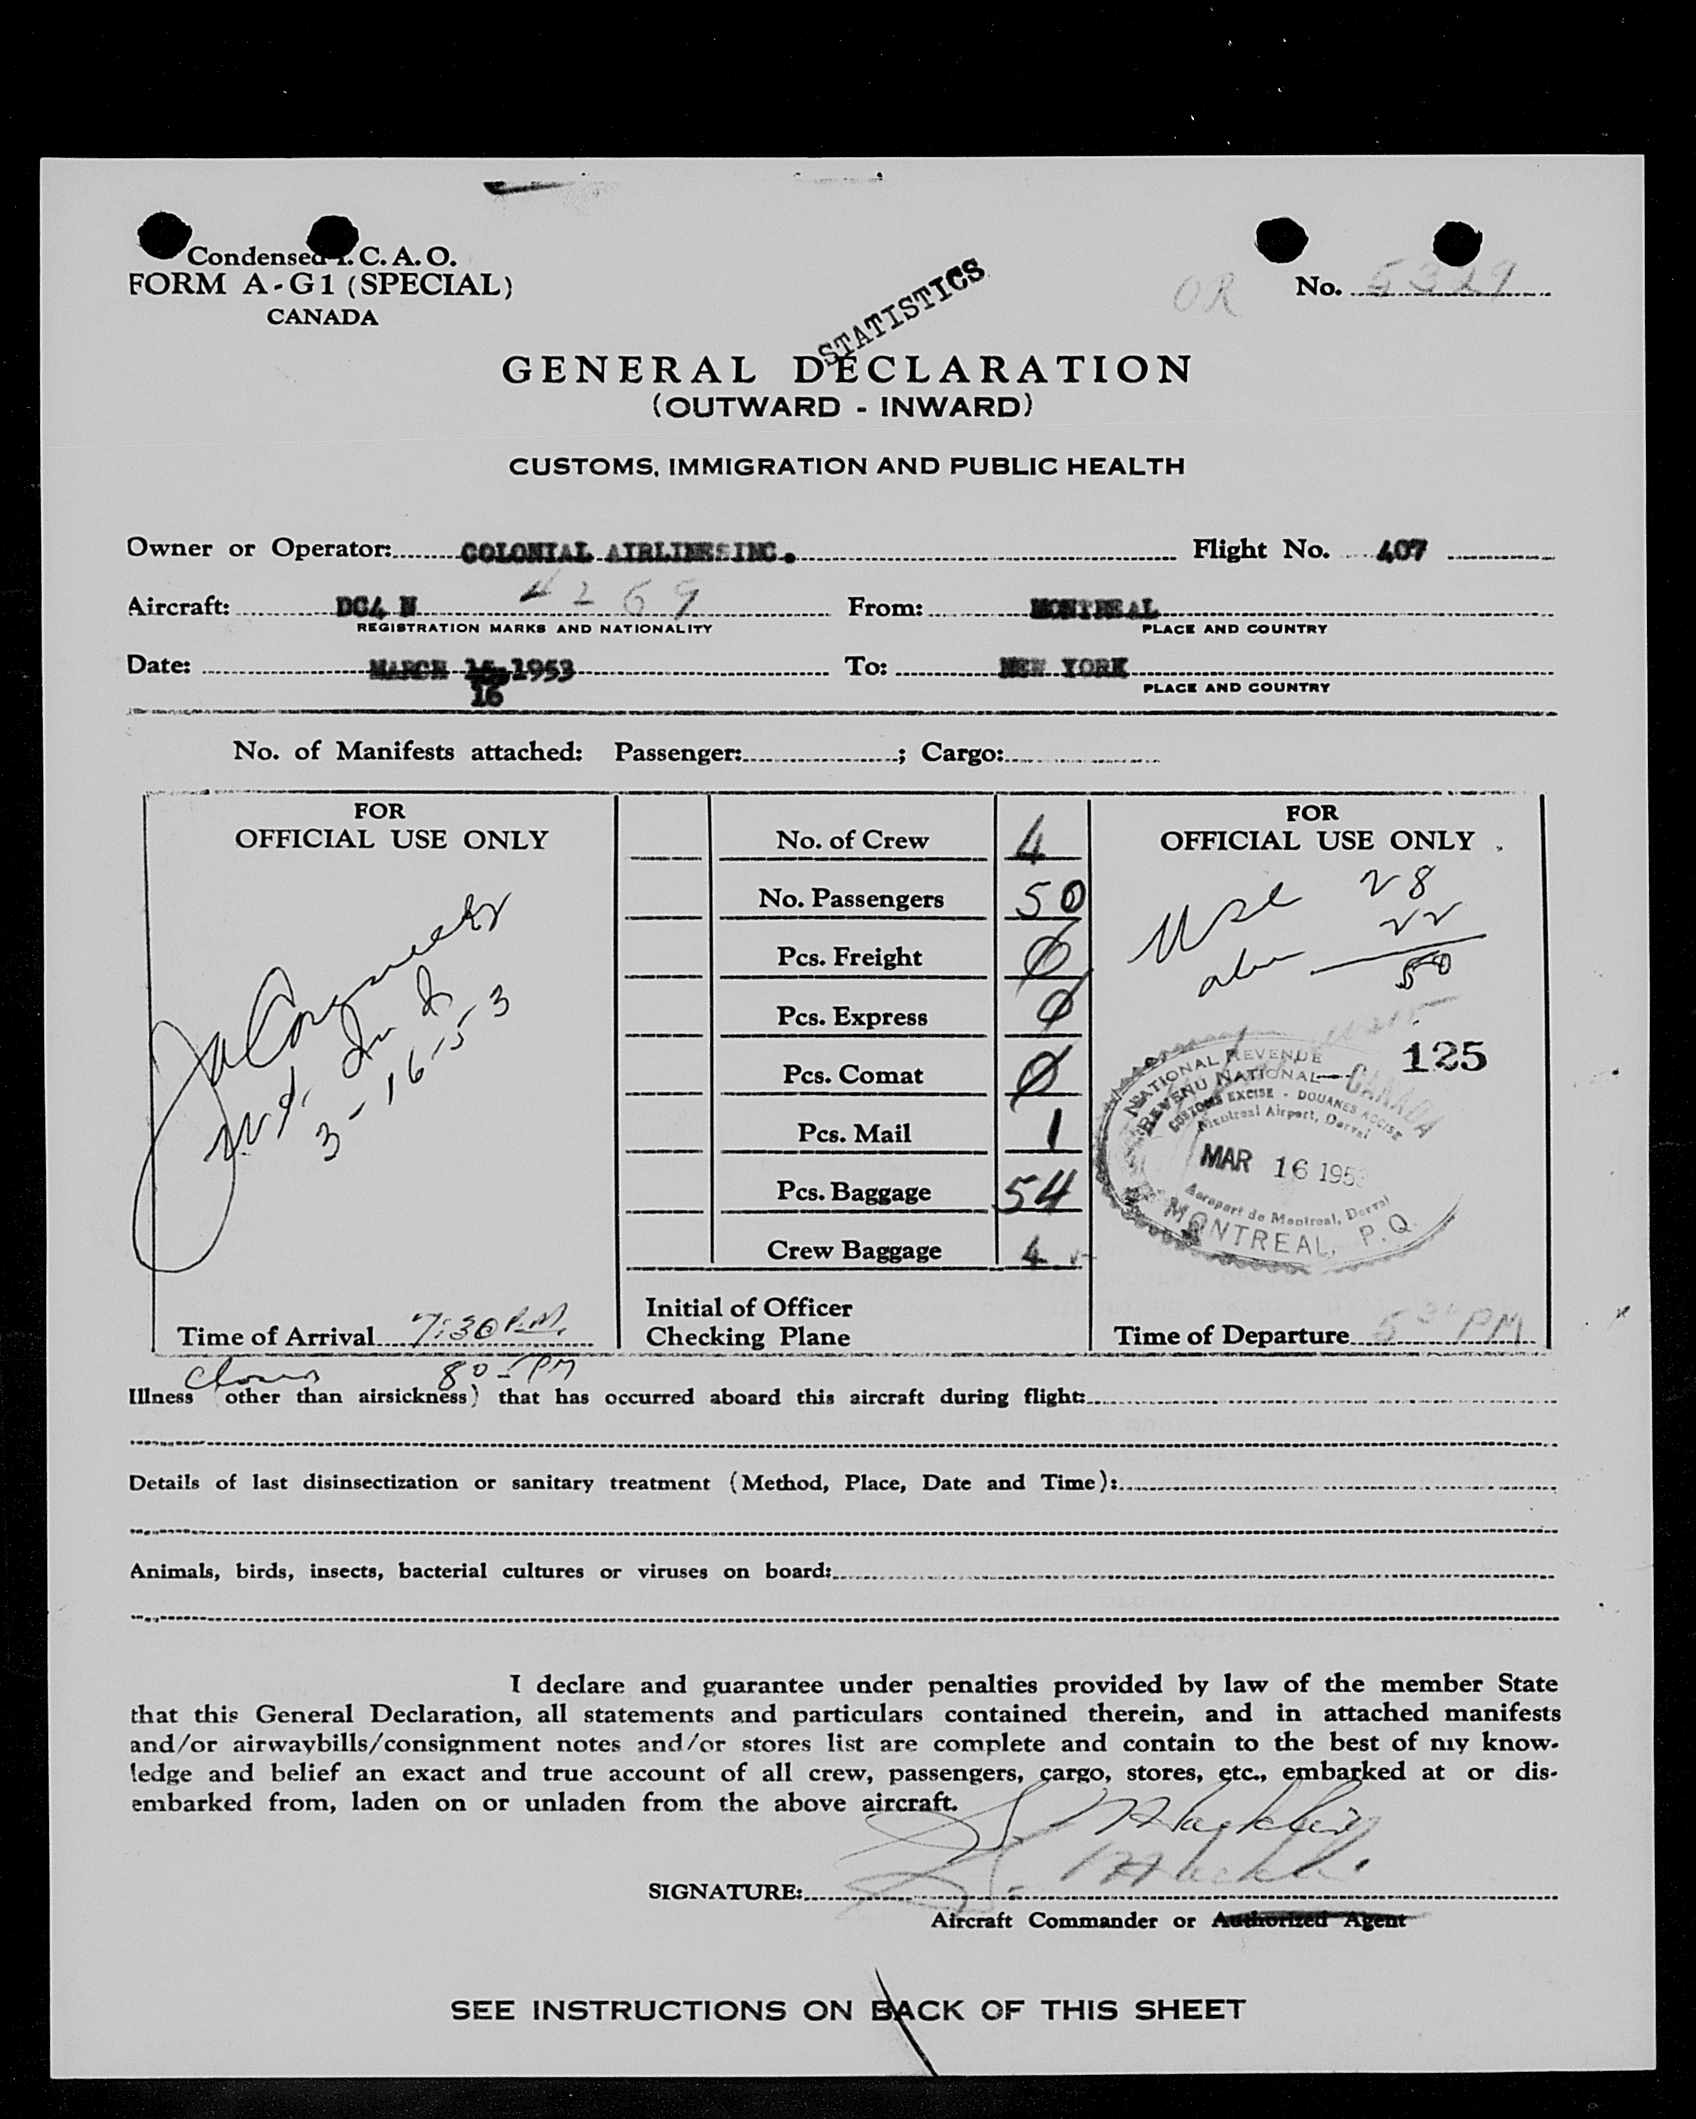 Condensed I. C. A. O.
FORM A-G1 (SPECIAL)
CANADA
STATISTICS
OR No. 5329
GENERAL DECLARATION
(OUTWARD - INWARD)
CUSTOMS, IMMIGRATION AND PUBLIC HEALTH
Owner or Operator: COLONIAL AIRLINES INC. Flight No. 407
Aircraft: DC4 N 4269 From: MONTREAL
REGISTRATION MARKS AND NATIONALITY PLACE AND COUNTRY
Date: MARCH 1953 To: NEW YORK
16 PLACE AND COUNTRY
No. of Manifests attached: Passenger: ; Cargo:
FOR
OFFICIAL USE ONLY
3-16-53
Time of Arrival 7:30 P.M.
No. of Crew 4
No. Passengers 50
Pcs. Freight 0
Pcs. Express 0
Pcs. Comat 0
Pcs. Mail 1
Pcs. Baggage 54
Crew Baggage 4
Initial of Officer
Checking Plane
FOR
OFFICIAL USE ONLY
USC 28
22
50
125
NATIONAL REVENUE
REVENU NATIONAL CANADA
CUSTOMS EXCISE - DOUANES ACCISE
Montreal Airport, Dorval
MAR 16 195
Aeroport de Montreal, Dorval
MONTREAL, P.Q.
Time of Departure 530 PM
805 PM
Illness (other than airsickness) that has occurred aboard this aircraft during flight:
Details of last disinsectization or sanitary treatment (Method, Place, Date and Time):
Animals, birds, insects, bacterial cultures or viruses on board:
I declare and guarantee under penalties provided by law of the member State
that this General Declaration, all statements and particulars contained therein, and in attached manifests
and/or airwaybills/consignment notes and/or stores list are complete and contain to the best of my know-
ledge and belief an exact and true account of all crew, passengers, cargo, stores, etc., embarked at or dis-
embarked from, laden on or unladen from the above aircraft.
SIGNATURE:
Aircraft Commander or Authorized Agent
SEE INSTRUCTIONS ON BACK OF THIS SHEET